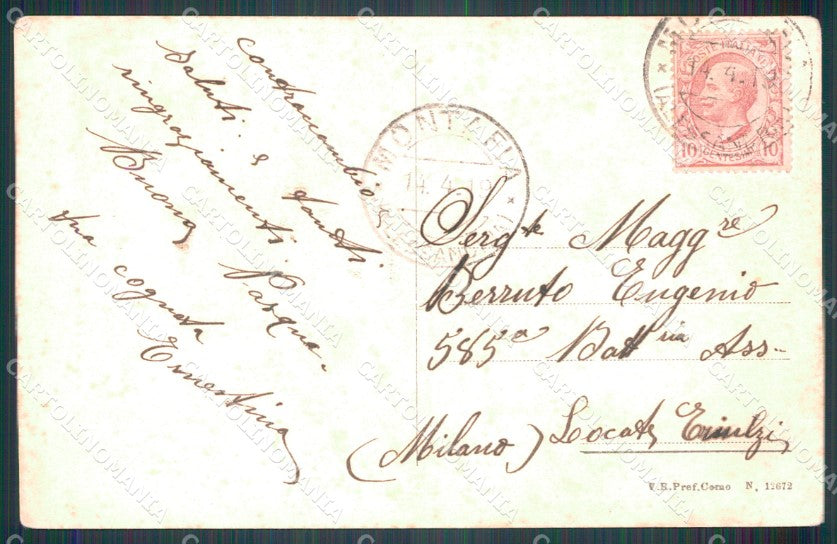 contracambio
saluti e tanti
ringraziamenti.
Buona Pasqua.
tua cognata
Ernestina
MONTABIA
14. 4. 19
10 10
CENTESIMI
Serg.te Magg.re
Berruto Eugenio
585a Batt.ria Ass-
(Milano) Locate
V.E.Pref.Como N. 12672
CARTOLINOMANIA